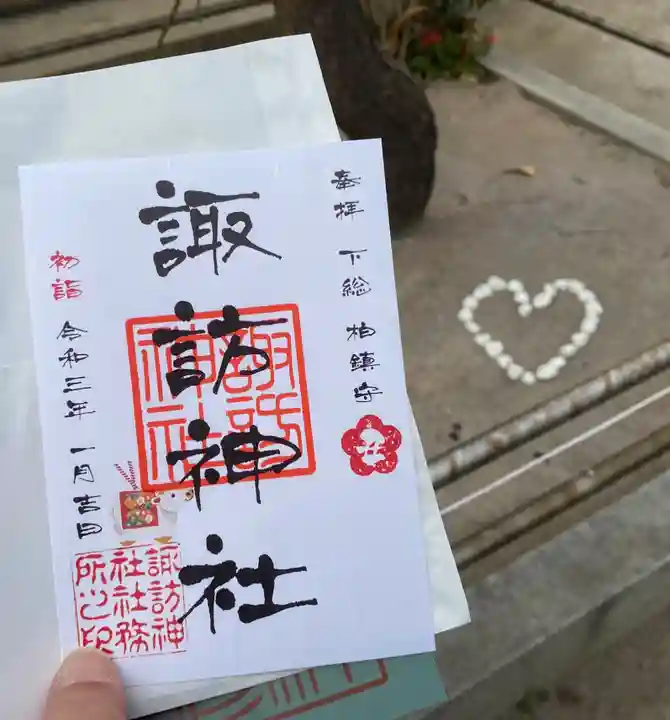 奉拝 下総 柏鎮守
諏訪神社
諏訪
神社
初詣 令和三年 一月吉日
諏訪神
社社務
所之印